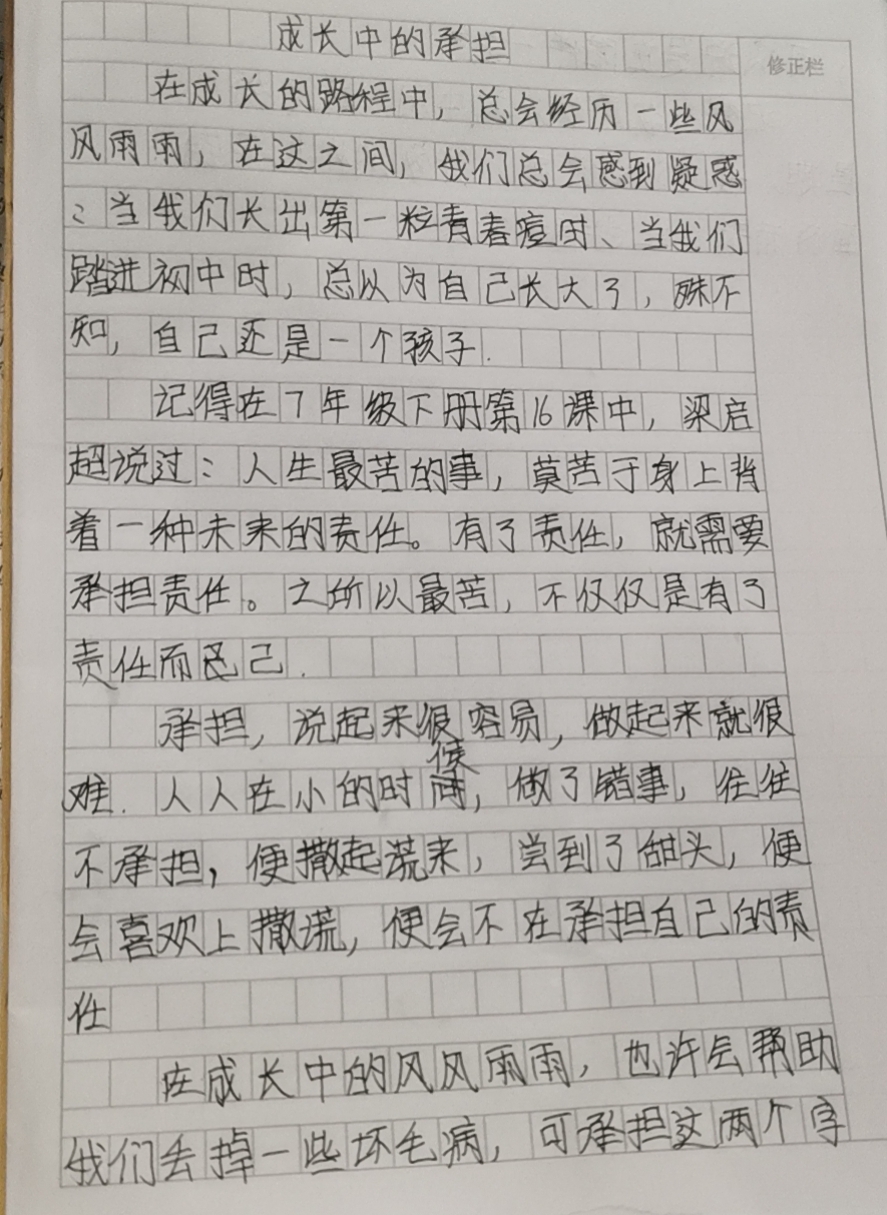 成长中的承担
修正栏
在成长的路程中，总会经历一些风
风雨雨，在这之间，我们总会感到疑惑
：当我们长出第一粒青春痘时、当我们
踏进初中时，总以为自己长大了，殊不
知，自己还是一个孩子.
记得在7年级下册第16课中，梁启
超说过：人生最苦的事，莫苦于身上背
着一种未来的责任。有了责任，就需要
承担责任。之所以最苦，不仅仅是有了
责任而已己.
承担，说起来很容易，做起来就很
难.人人在小的时候，做了错事，往往
不承担，便撒起谎来，尝到了甜头，便
会喜欢上撒谎，便会不在承担自己的责
任
在成长中的风风雨雨，也许会帮助
我们去掉一些坏毛病，可承担这两个字